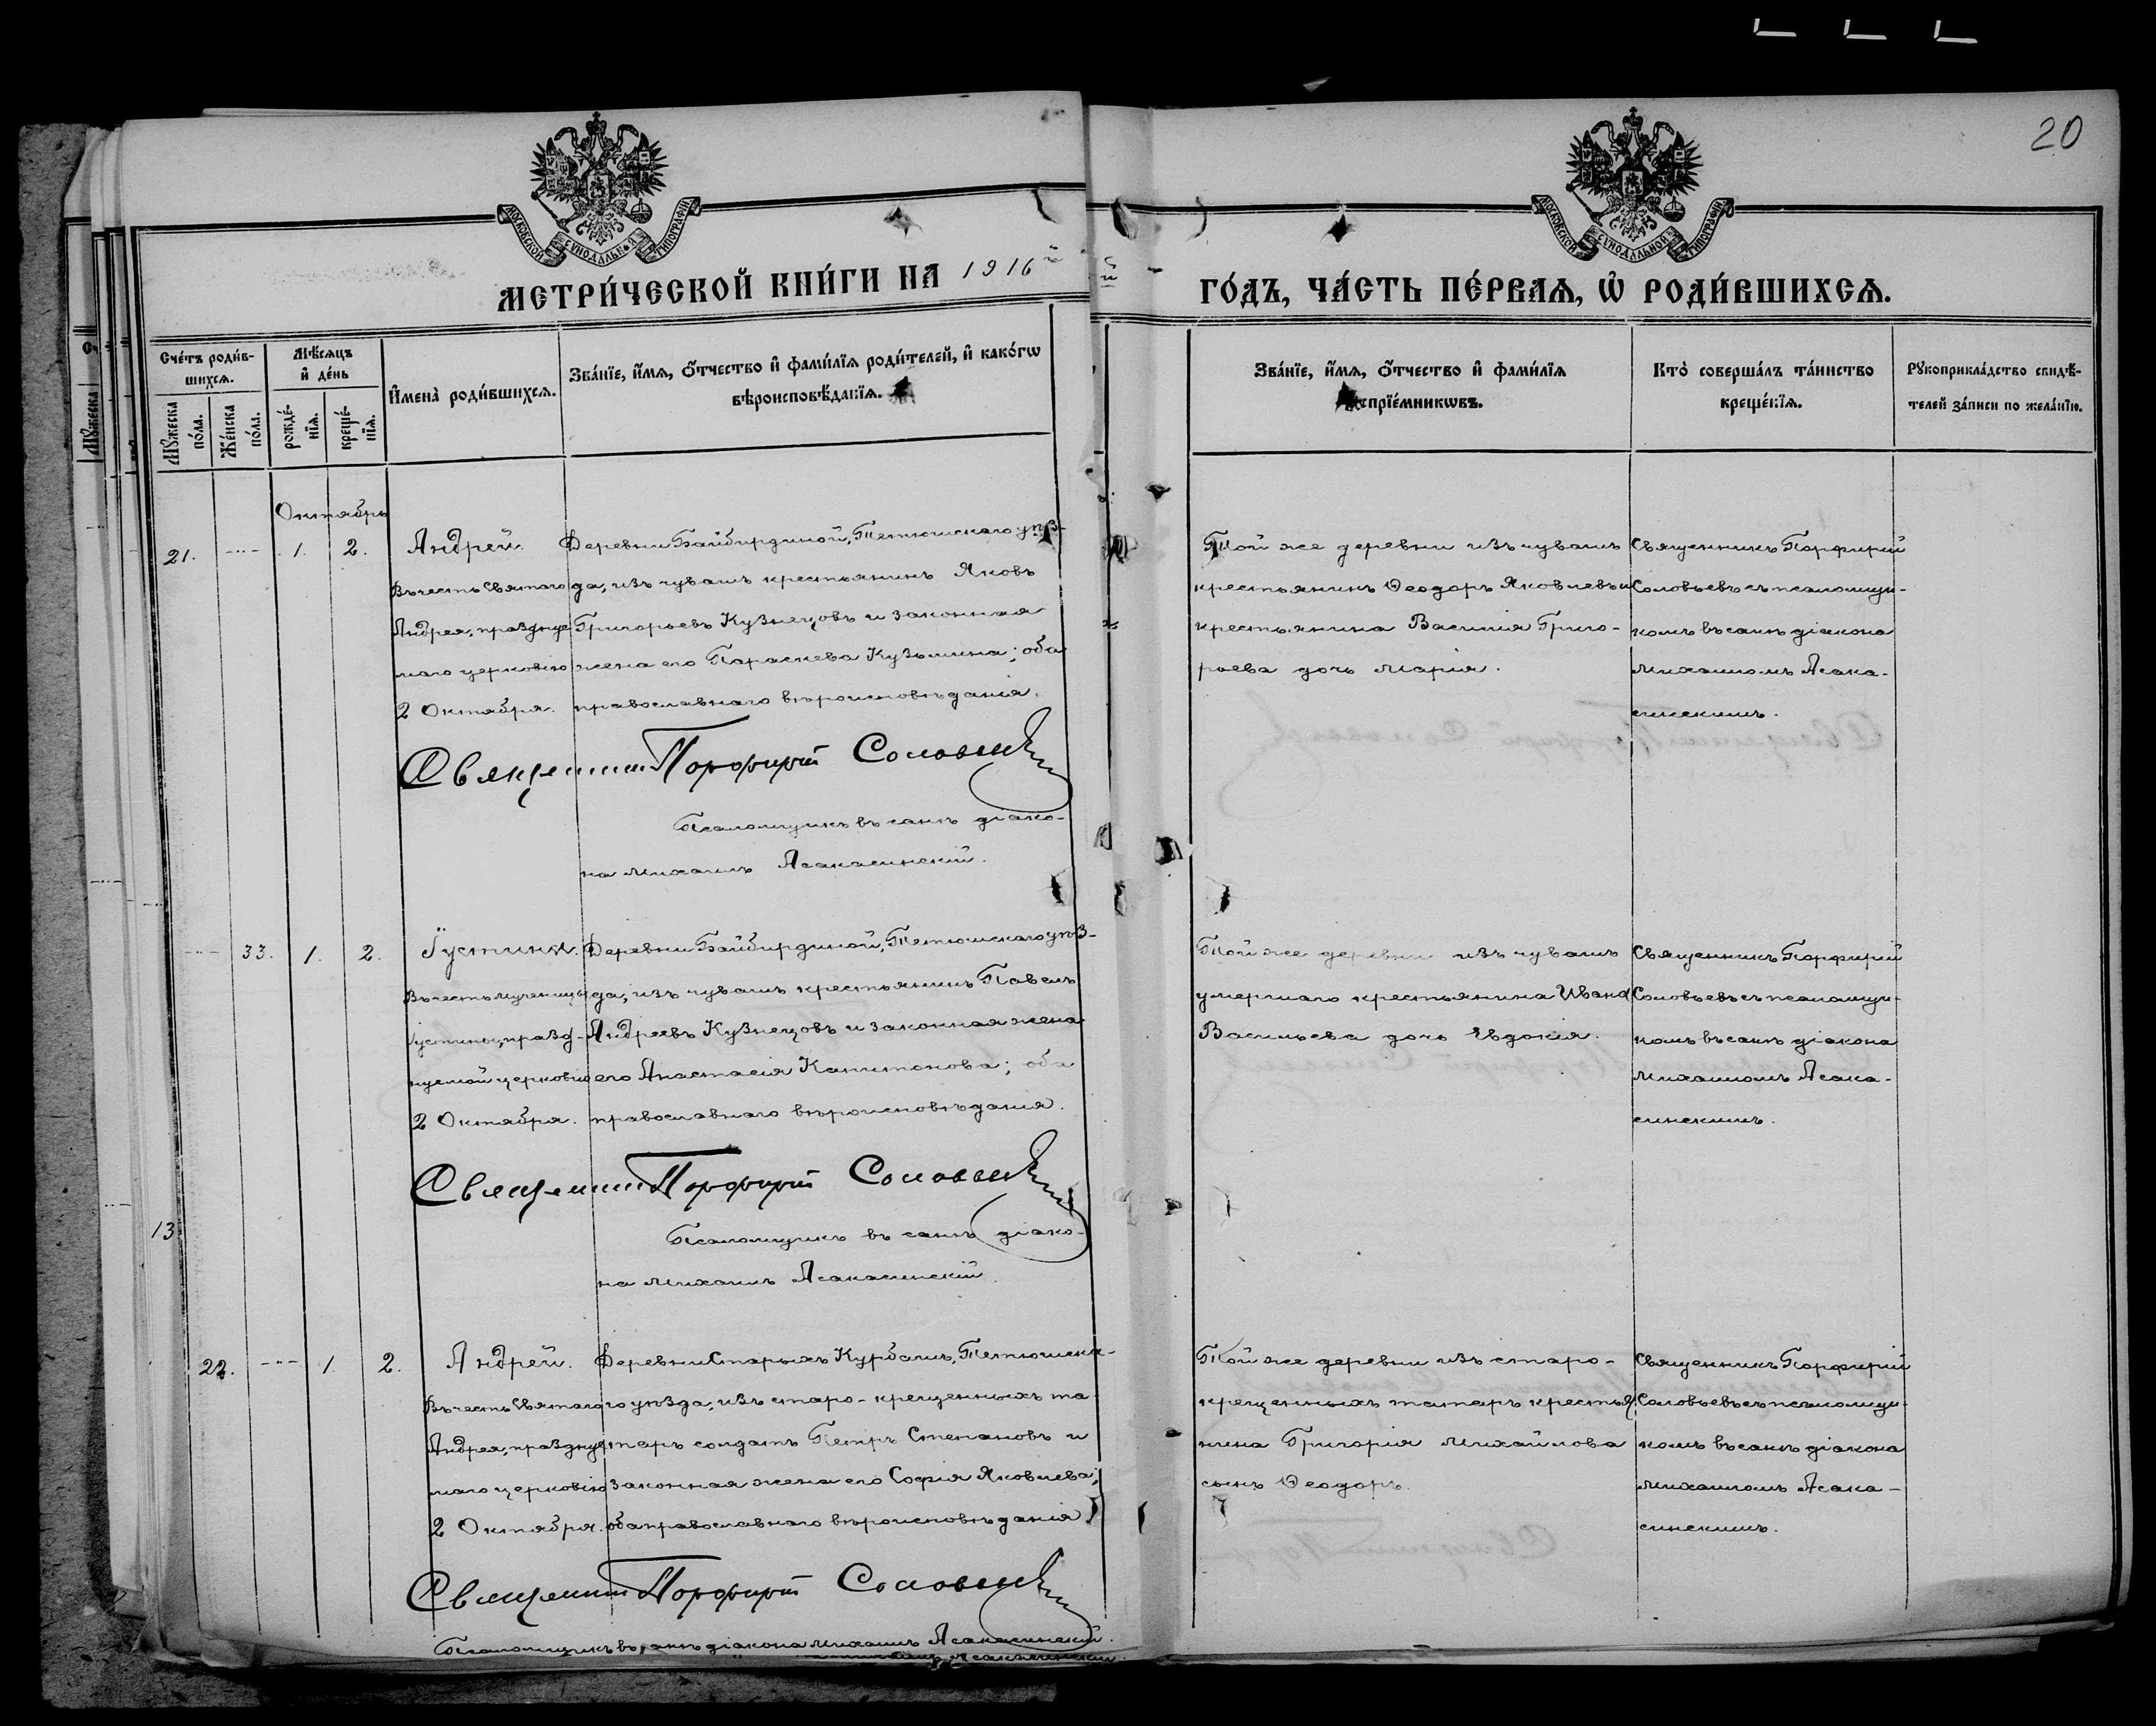 20
МОСКОВСКОЙ СѴНОДАЛЬНОЙ ТИПОГРАФІИ
МОСКОВСКОЙ СѴНОДАЛЬНОЙ ТИПОГРАФІИ
МЕТРИ́ЧЕСКОЙ КНИ́ГИ НА 1916й
ГО́ДЪ, ЧА́СТЬ ПЕ́РВАЯ, Ѡ҆ РОДИ́ВШИХСЯ.
Сче́тъ роди́в-
шихся.
Мꙋ́жеска по́ла.
Же́нска по́ла.
Мѣ́сяцъ и҆ де́нь
рожде́-
нїя.
креще́-
нїя.
И҆мена̀ роди́вшихся.
Зва́нїе, и҆́мя, ѻ҆́тчество и҆ фами́лїя роди́телей, и҆ како́гѡ
вѣроисповѣ́данїя.
Зва́нїе, и҆́мя, ѻ҆́тчество и҆ фами́лїя
воспрїе́мникѡвъ.
Кто̀ соверша́лъ та́инство
креще́нїя.
Рꙋкоприкла́дство свидѣ́-
телей за́писи по жела́нїю.
Октябрь
21. ---- 1. 2.
Андрей.
Въ честь Святого
Андрея, празднуе
маго церковію
2 Октября.
Деревни Байбирдиной, Тетюшскаго уѣз-
да, изъ чувашъ крестьянинъ Яковъ
Григорьевъ Кузнецовъ и законная
жена его Параскева Кузьмина; оба
православнаго вѣроисповѣданія.
Священникъ Порфирій Соловьевъ
Псаломщикъ въ санѣ діако-
на Михаилъ Асакасинскій.
Той же деревни изъ чувашъ
крестьянинъ Ѳеодоръ Яковлевъ и
крестьянина Василія Григо-
рьева дочь Марія.
Священникъ Порфирій
Соловьевъ съ псаломщи-
комъ въ санѣ діакона
Михаиломъ Асака-
синскимъ.
---- 33. 1. 2.
Іустина.
Въ честь мученицы
Іустины, празд-
нуемой церковію
2 Октября.
Деревни Байбирдиной, Тетюшскаго уѣз-
да, изъ чувашъ крестьянинъ Павелъ
Андреевъ Кузнецовъ и законная жена
его Анастасія Капитонова; оба
православнаго вѣроисповѣданія.
Священникъ Порфирій Соловьевъ
Псаломщикъ въ санѣ діако-
на Михаилъ Асакасинскій.
Той же деревни изъ чувашъ
умершаго крестьянина Ивана
Васильева дочь Евдокія.
Священникъ Порфирій
Соловьевъ съ псаломщи-
комъ въ санѣ діакона
Михаиломъ Асака-
синскимъ.
13
22. ---- 1. 2.
Андрей.
Въ честь Святаго
Андрея, празднуе
маго церковію
2 Октября.
Деревни Старыхъ Курбашъ, Тетюшска-
го уѣзда, изъ старо-крещенныхъ та-
таръ солдатъ Петръ Степановъ и
законная жена его Софія Яковлева;
оба православнаго вѣроисповѣданія.
Священникъ Порфирій Соловьевъ
Псаломщикъ въ санѣ діакона Михаилъ Асакасинскій.
Той же деревни изъ старо-
крещенныхъ татаръ крестья-
нина Григорія Михайлова
сынъ Ѳеодоръ.
Священникъ Порфирій
Соловьевъ съ псаломщи-
комъ въ санѣ діакона
Михаиломъ Асака-
синскимъ.